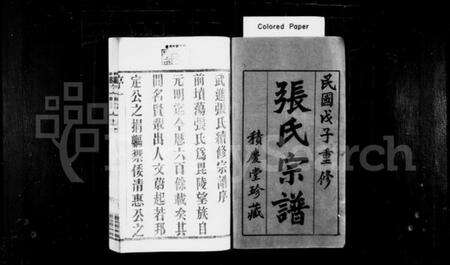 Colored Paper
民國戊子重修
張氏宗譜
積慶堂珍藏
武進張氏續修宗譜序
前墳蕩張氏爲毘陵望族自
元明迄今歷六百餘載矣其
間名賢輩出人文蔚起若邦
定公之捐軀禦倭清惠公之